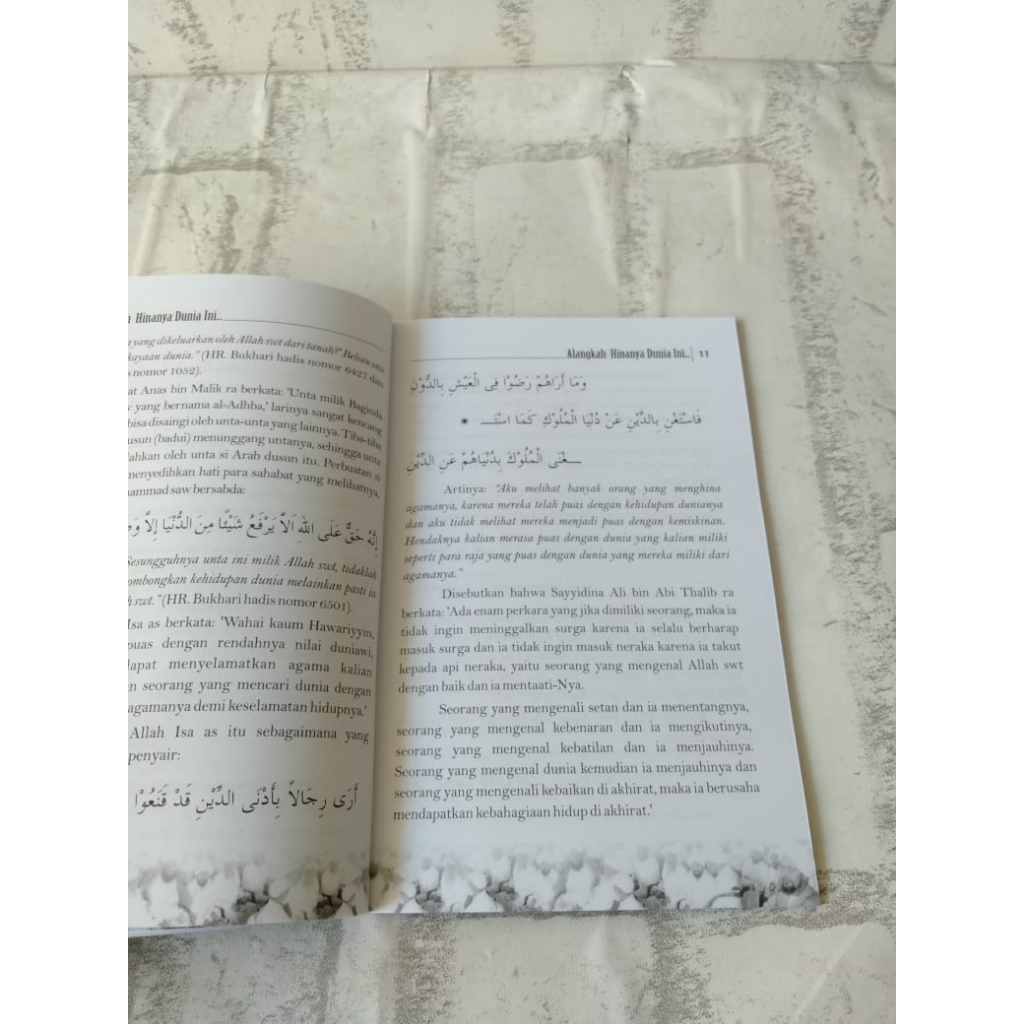 Hinanya Dunia Ini...
yang dikeluarkan oleh Allah swt dari tanah?" Beliau saw
kayaan dunia." (HR. Bukhari hadis nomor 6427 dan
nomor 1052).
at Anas bin Malik ra berkata: 'Unta milik Baginda
yang bernama al-Adhba,' larinya sangat kencang
bisa disaingi oleh unta-unta yang lainnya. Tiba-tiba
usun (badui) menunggang untanya, sehingga unta
lahkan oleh unta si Arab dusun itu. Perbuatan si
menyedihkan hati para sahabat yang melihatnya,
ammad saw bersabda:
إِنَّهُ حَقٌّ عَلَى اللهِ اَلاَّ يَرْفَعُ شَيْئًا مِنَ الدُّنْيَا إِلاَّ
Sesungguhnya unta ini milik Allah swt, tidaklah
ombongkan kehidupan dunia melainkan pasti ia
h swt." (HR. Bukhari hadis nomor 6501).
Isa as berkata: 'Wahai kaum Hawariyyin,
puas dengan rendahnya nilai duniawi,
apat menyelamatkan agama kalian
n seorang yang mencari dunia dengan
agamanya demi keselamatan hidupnya.'
Allah Isa as itu sebagaimana yang
penyair:
أَرَى رِجَالاً بِأَدْنَى الدِّيْنِ قَدْ قَنَعُوْا
Alangkah Hinanya Dunia Ini... | 11
وَمَا أَرَاهُمْ رَضُوْا فِى الْعَيْشِ بِالدُّوْنِ
فَاسْتَغْنِ بِالدِّيْنِ عَنْ دُنْيَا الْمُلُوْكِ كَمَا اسْتَـــ *
ـــغْنَى الْمُلُوْكَ بِدُنْيَاهُمْ عَنِ الدِّيْنِ
Artinya: "Aku melihat banyak orang yang menghina
agamanya, karena mereka telah puas dengan kehidupan dunianya
dan aku tidak melihat mereka menjadi puas dengan kemiskinan.
Hendaknya kalian merasa puas dengan dunia yang kalian miliki
seperti para raja yang puas dengan dunia yang mereka miliki dari
agamanya."
Disebutkan bahwa Sayyidina Ali bin Abi Thalib ra
berkata: 'Ada enam perkara yang jika dimiliki seorang, maka ia
tidak ingin meninggalkan surga karena ia selalu berharap
masuk surga dan ia tidak ingin masuk neraka karena ia takut
kepada api neraka, yaitu seorang yang mengenal Allah swt
dengan baik dan ia mentaati-Nya.
Seorang yang mengenali setan dan ia menentangnya,
seorang yang mengenal kebenaran dan ia mengikutinya,
seorang yang mengenal kebatilan dan ia menjauhinya.
Seorang yang mengenal dunia kemudian ia menjauhinya dan
seorang yang mengenali kebaikan di akhirat, maka ia berusaha
mendapatkan kebahagiaan hidup di akhirat.'